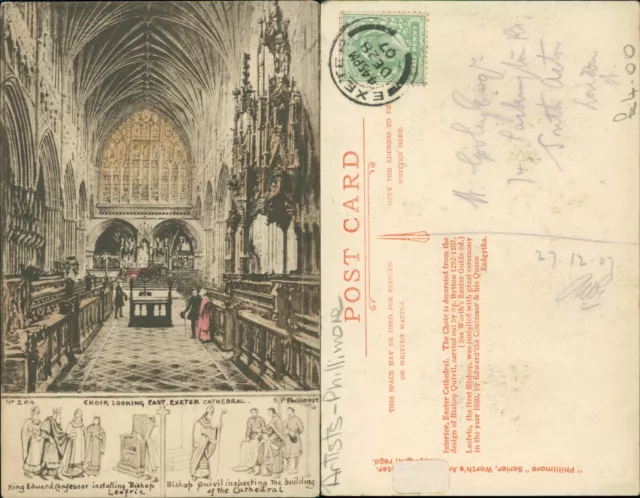 No 204. CHOIR LOOKING EAST. EXETER CATHEDRAL. S P Phillimore
King Edward Confessor installing Bishop
Leofric
Bishop Quivil inspecting the building
of the Cathedral
EXETER
5.45 PM
DE 28
07
POST CARD
ONLY THE ADDRESS TO BE
WRITTEN HERE.
THIS SPACE MAY BE USED FOR PRINTED
OR WRITTEN MATTER.
Artists - Phillimore
South Acton
London
W
£4.00
27.12.07
Interior, Exeter Cathedral. The Choir is decorated from the
design of Bishop Quivil, carried out by Bp. Bytton 1292-1307.
(See Worth's Exeter Guide 6d.)
Leofric, the first Bishop, was installed with great ceremony
in the year 1050, by Edward the Confessor & his Queen
Eadgytha.
"Phillimore" Series, Worth's Ar
regd.